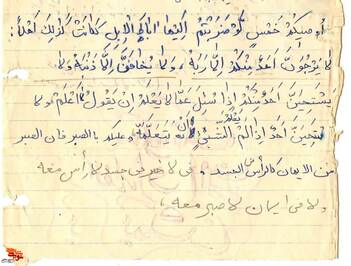 أوصيكم بخمس لو ضربتم إليها آباط الإبل كانت لذلك أهلاً:
لا يرجونّ أحد منكم إلّا ربّه، ولا يخافنّ إلّا ذنبه ولا
يستحينّ أحد منكم إذا سئل عمّا لا يعلم ان يقول لا أعلم ولا
يستحينّ أحد إذا لم يعلم الشّئ أن يتعلّمه وعليكم بالصبر فان الصبر
من الايمان كالرأس من الجسد، ولا خير فى جسد لا رأس معه
ولا فى ايمان لا صبر معه،